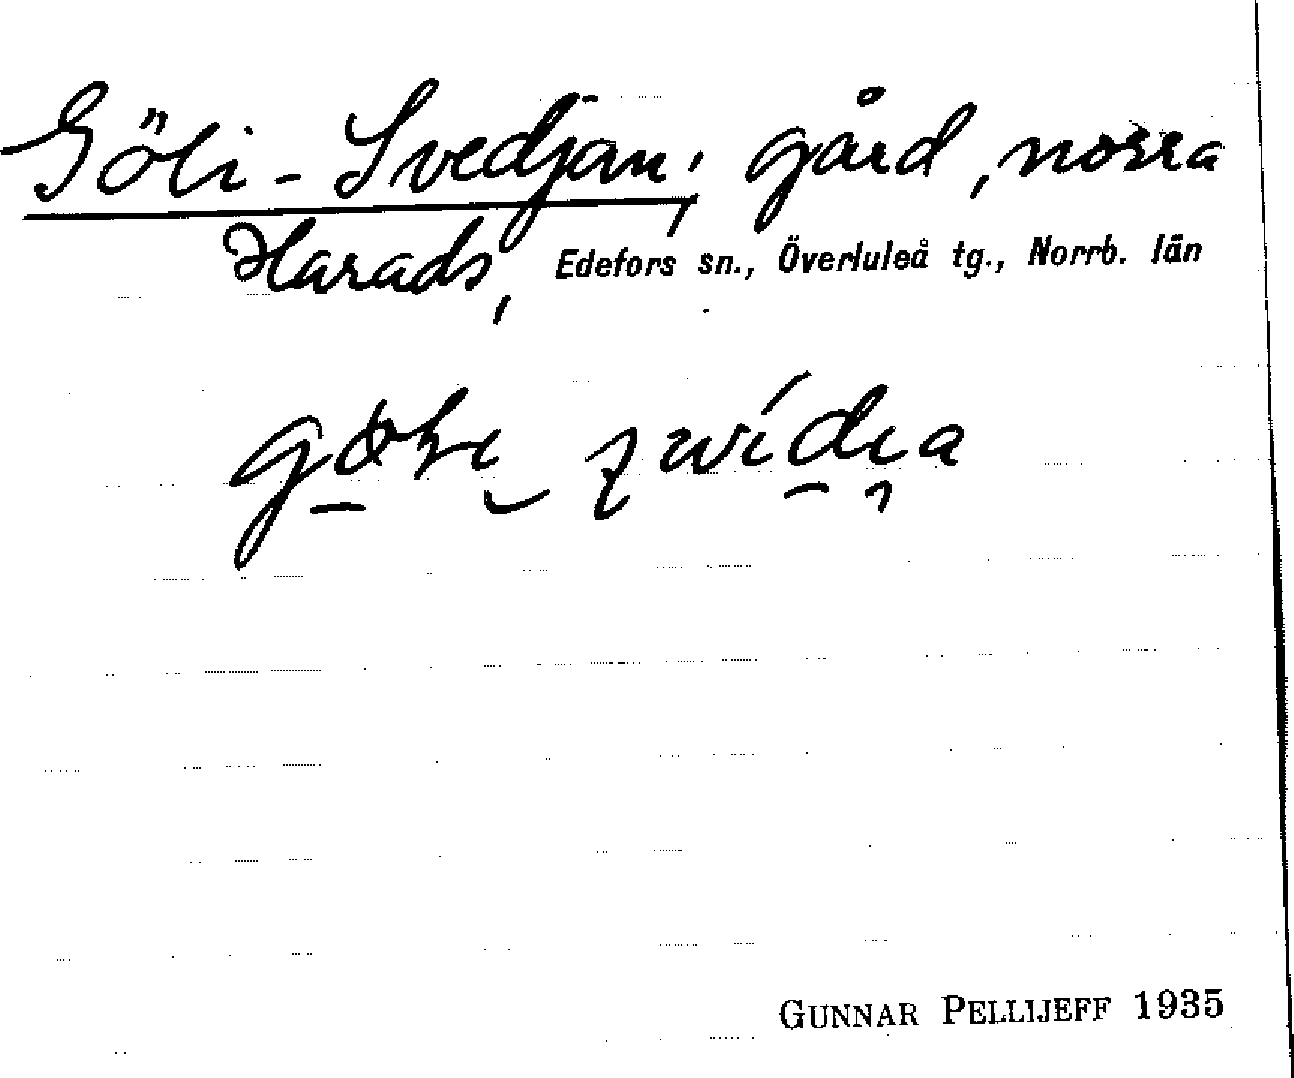 Göli-Svedjan, gård, norra
Harads, Edefors sn., Överluleå tg., Norrb. län
GUNNAR PELLIJEFF 1935